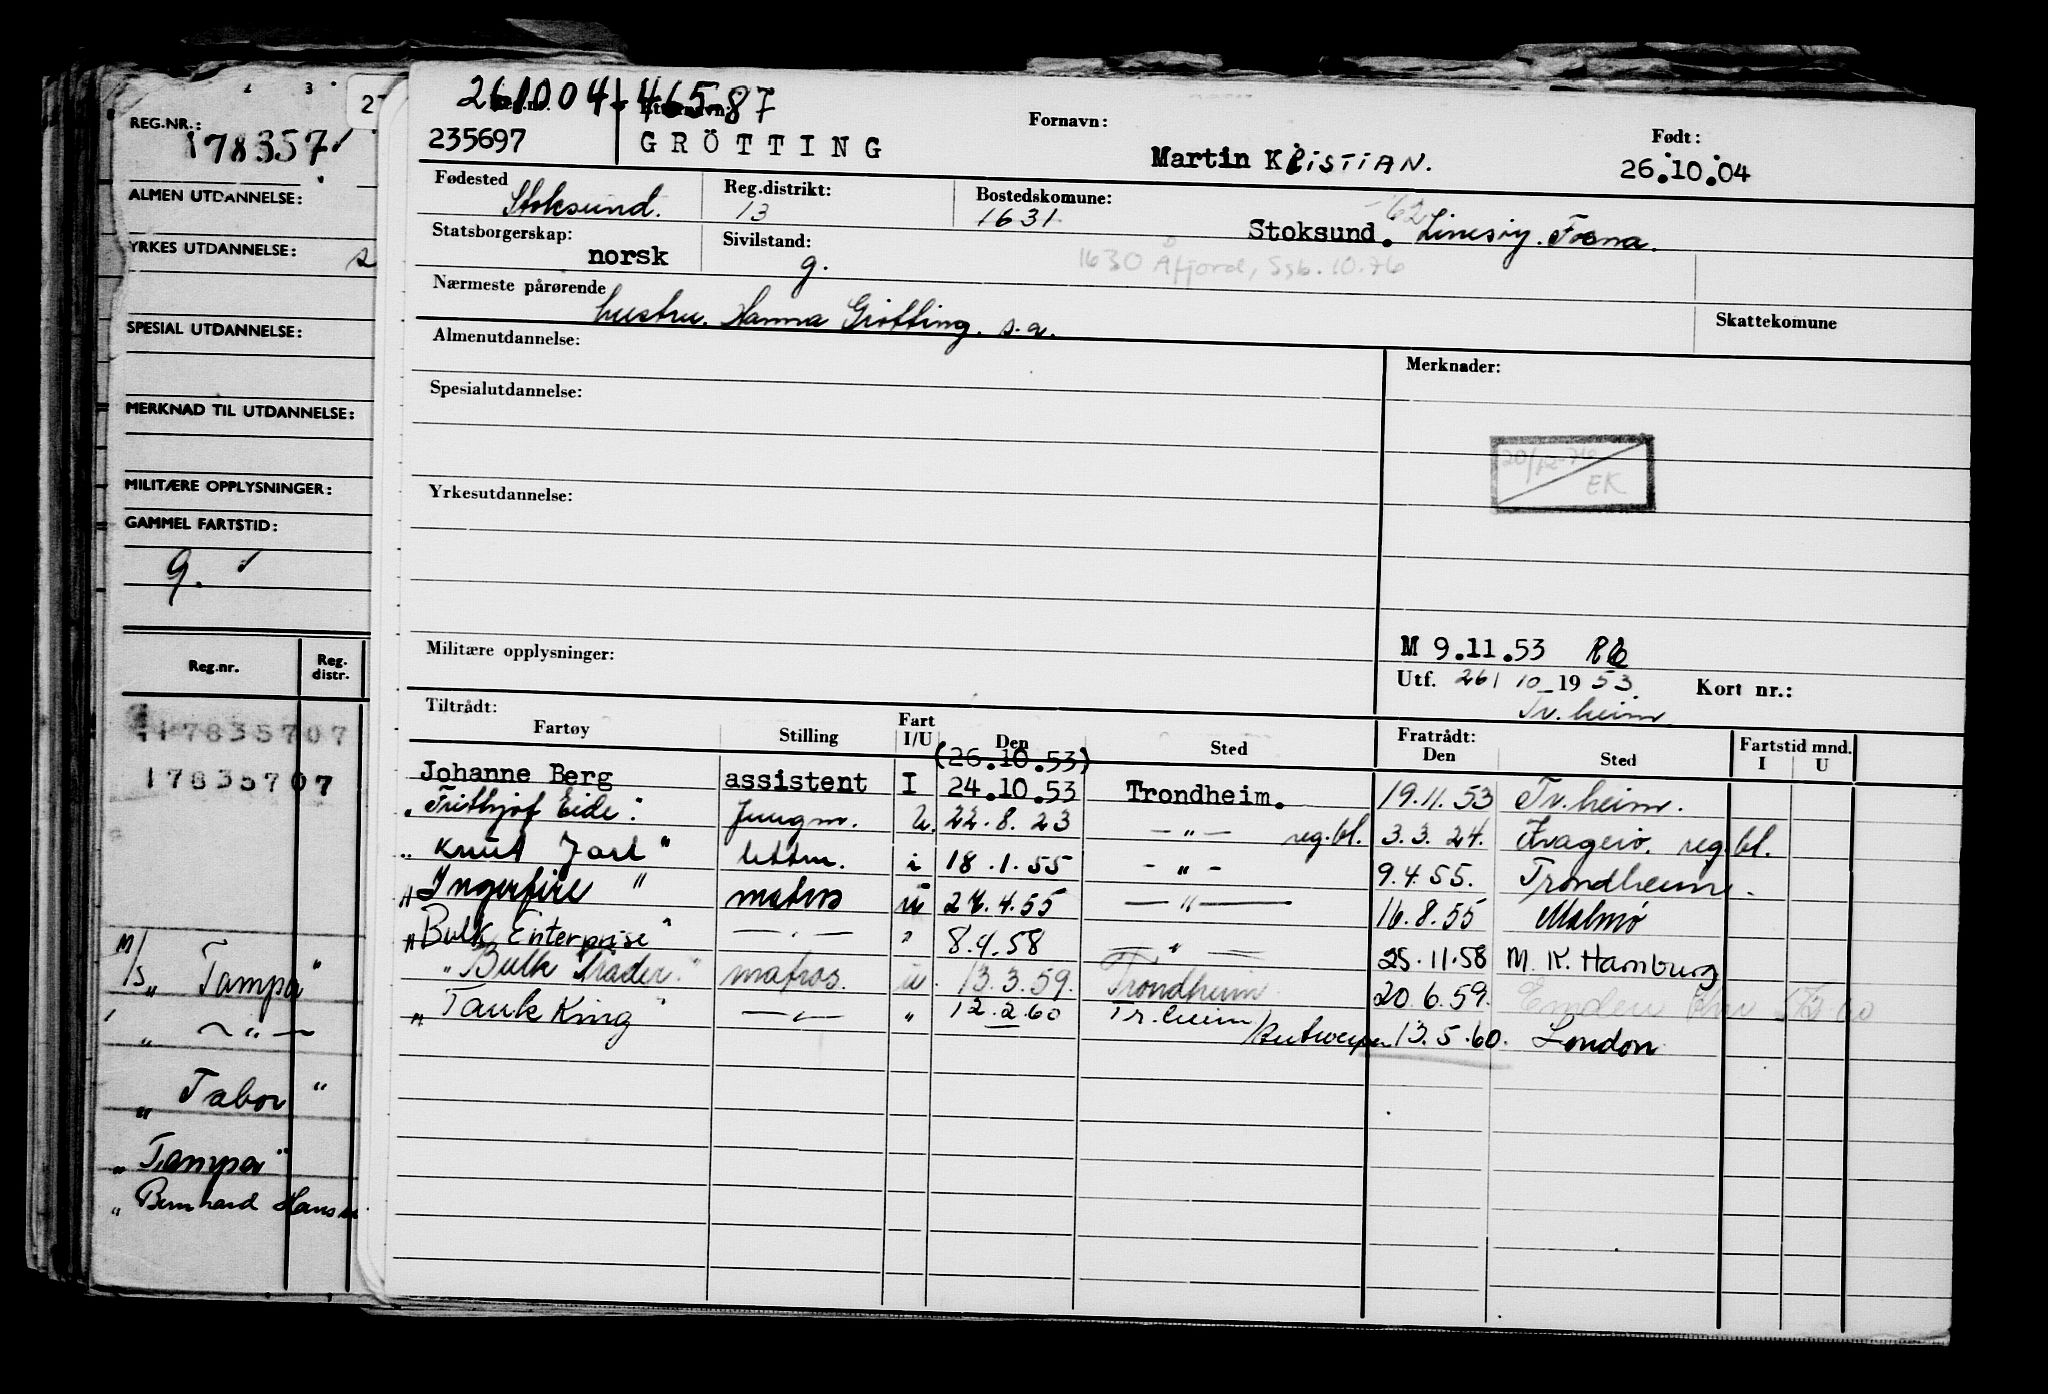 2 3
2
REG.NR.:
178357
ALMEN UTDANNELSE:
YRKES UTDANNELSE:
SPESIAL UTDANNELSE:
MERKNAD TIL UTDANNELSE:
MILITÆRE OPPLYSNINGER:
GAMMEL FARTSTID:
g.
Reg.nr. Reg. distr.
17835707
17835707
M/S " Tampa "
" — " —
" Tabor "
" Tampa "
" Bernhard Hans
261004 46587
235697 GRÖTTING
Fornavn:
Martin KRISTIAN.
Født:
26.10.04
Fødested
Stoksund.
Reg.distrikt:
13
Bostedskomune:
1631
-62
Stoksund. Linesøy. Fosna.
Statsborgerskap:
norsk
Sivilstand:
g.
1630 Åfjord, Ssb. 10.76
Nærmeste pårørende
hustru. Hanna Grøtting. s.a.
Skattekomune
Almenutdannelse:
Merknader:
Spesialutdannelse:
EK
Yrkesutdannelse:
Militære opplysninger:
M 9.11.53
Utf. 26/10-1953. Kort nr.:
Tr.heim
Tiltrådt:
Fartøy Stilling Fart I/U Den Sted Fratrådt: Den Sted Fartstid mnd. I U
(26.10.53)
Johanne Berg assistent I 24.10.53 Trondheim. 19.11.53 Tr.heim.
" Frithjof Eide " Jungm. U. 22.8.23 — " — reg.bl. 3.3.24. reg.bl.
" Knut Jarl " lettm. i 18.1.55 - " - 9.4.55. Trondheim.
" Ingerfire " matros u 24.55 — " — 16.8.55 Malmø
" Bulk Enterprise " — " — " 8.4.58 — " — 25.11.58 M. K. Hamburg
" Bulk Trader " matros. u. 13.3.59. Trondheim. 20.6.59. Emden
" Tank King " — " — " 12.2.60 Tr.heim/Antwerpen 13.5.60. London